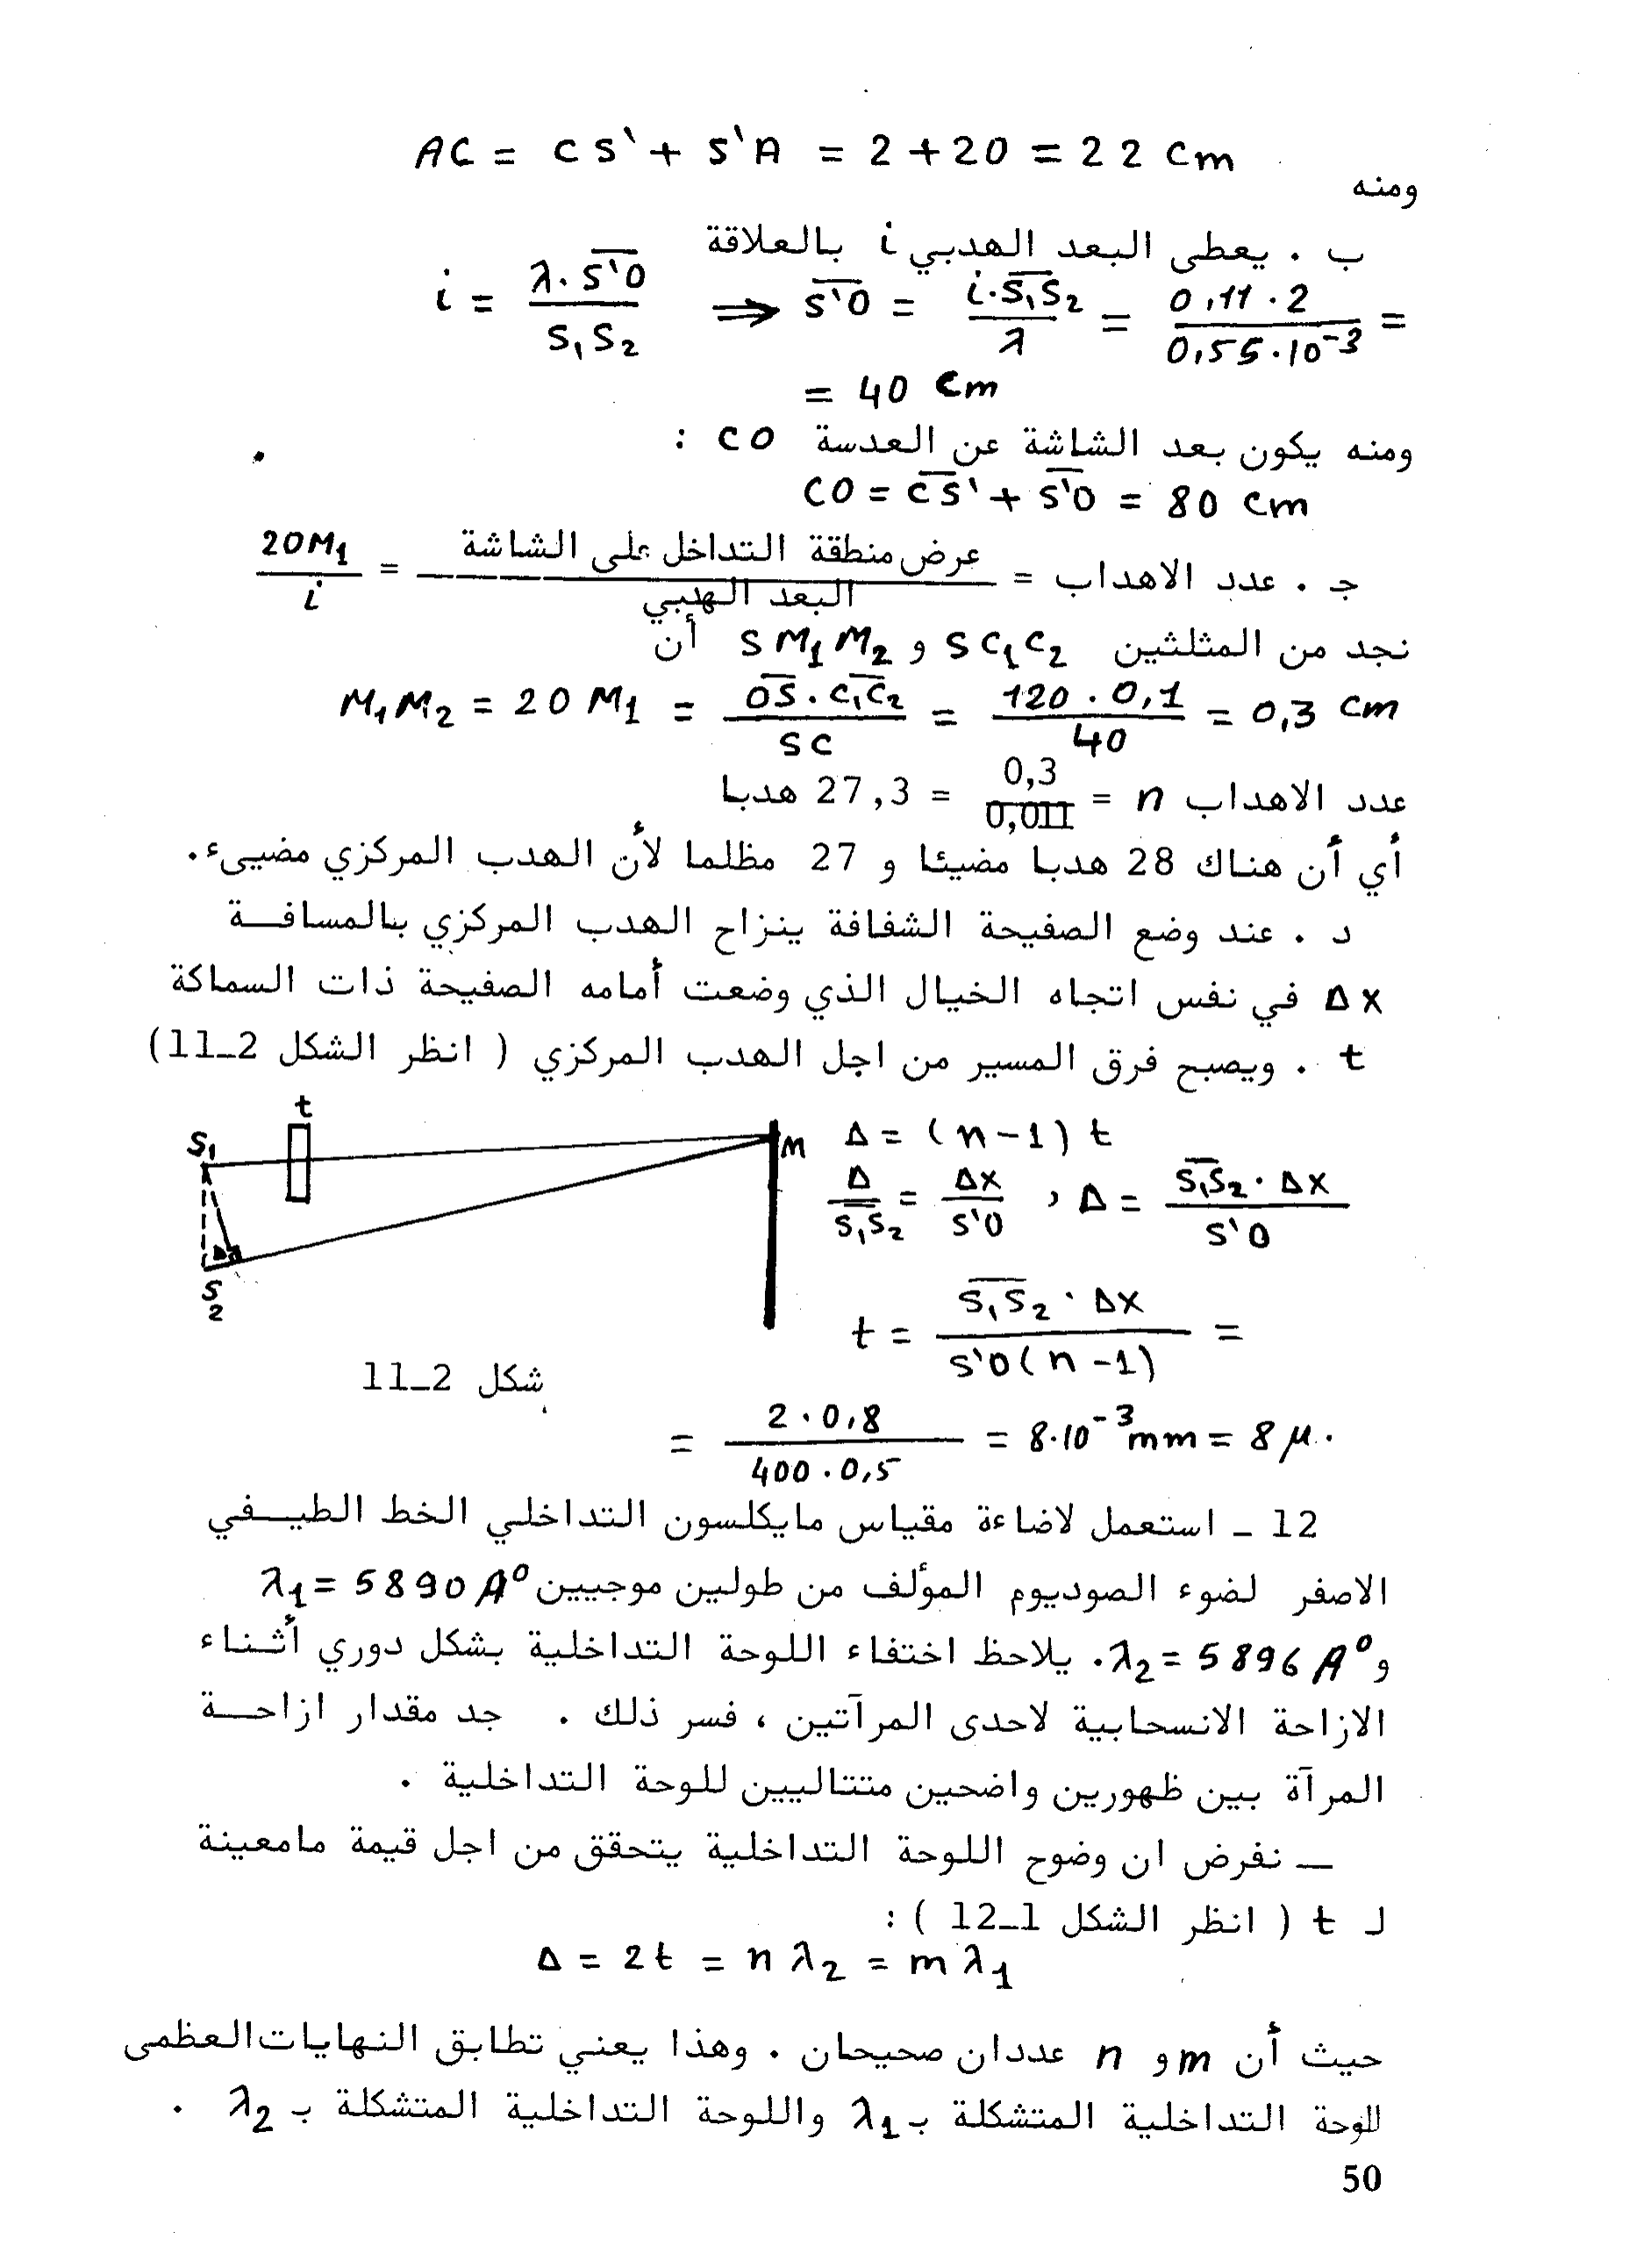 AC = CS' + S'A = 2 + 20 = 22 Cm
ومنه
ب . يعطى البعد الهدبي i بالعلاقة
i = λ.S'O / S₁S₂ ⟹ S'O = i.S₁S₂ / λ = 0,11 . 2 / 0,55.10⁻³ =
= 40 Cm
ومنه يكون بعد الشاشة عن العدسة CO :
CO = CS' + S'O = 80 Cm
جـ . عدد الاهداب = عرض منطقة التداخل على الشاشة / البعد الهدبي = 2OM₁ / i
نجد من المثلثين SC₁C₂ و SM₁M₂ أن
M₁M₂ = 2OM₁ = OS.C₁C₂ / SC = 120 . 0,1 / 40 = 0,3 Cm
عدد الاهداب n = 0,3 / 0,011 = 27,3 هدبا
أي أن هناك 28 هدبا مضيئا و 27 مظلما لأن الهدب المركزي مضيىء.
د . عند وضع الصفيحة الشفافة ينزاح الهدب المركزي بالمسافـــة
Δx في نفس اتجاه الخيال الذي وضعت أمامه الصفيحة ذات السماكة
t . ويصبح فرق المسير من اجل الهدب المركزي ( انظر الشكل 2_11)
t
S₁
M
Δ
S₂
شكل 2_11
Δ = (n-1) t
Δ / S₁S₂ = Δx / S'O , Δ = S₁S₂ . Δx / S'O
t = S₁S₂ . Δx / S'O(n-1) =
= 2 . 0,8 / 400 . 0,5 = 8.10⁻³mm = 8 μ.
12 _ استعمل لاضاءة مقياس مايكلسون التداخلي الخط الطيــفي
الاصفر لضوء الصوديوم المؤلف من طولين موجيين λ₁ = 5890 A°
و λ₂ = 5896 A°. يلاحظ اختفاء اللوحة التداخلية بشكل دوري أثـناء
الازاحة الانسحابية لاحدى المرآتين ، فسر ذلك . جد مقدار ازاحـــة
المرآة بين ظهورين واضحين متتاليين للوحة التداخلية .
__ نفرض ان وضوح اللوحة التداخلية يتحقق من اجل قيمة مامعينة
لـ t ( انظر الشكل 1_12 ) :
Δ = 2t = n λ₂ = m λ₁
حيث أن m و n عددان صحيحان . وهذا يعني تطابق النهايات العظمى
للوحة التداخلية المتشكلة بـ λ₁ واللوحة التداخلية المتشكلة بـ λ₂ .
50